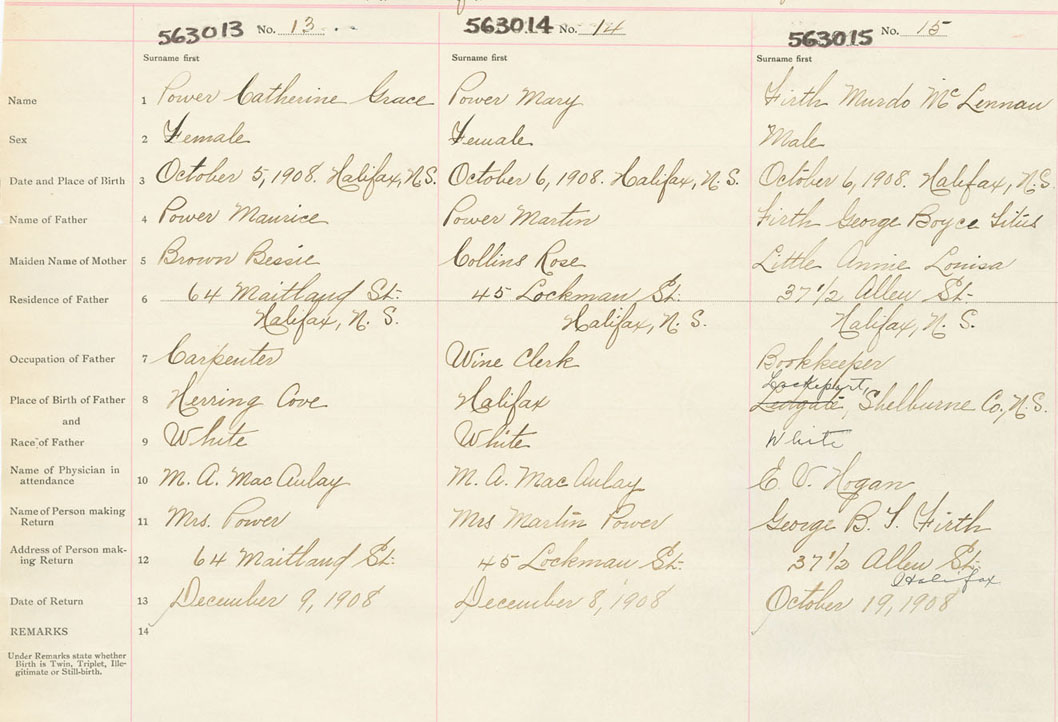 563013 No. 13 563014 No. 14 563015 No. 15
Surname first Surname first Surname first
Name 1 Power Catherine Grace Power Mary Firth Murdo McLennan
Sex 2 Female Female Male
Date and Place of Birth 3 October 5, 1908. Halifax, N.S. October 6, 1908. Halifax, N.S. October 6, 1908. Halifax, N.S.
Name of Father 4 Power Maurice Power Martin Firth George Boyce Titus
Maiden Name of Mother 5 Brown Bessie Collins Rose Little Annie Louisa
Residence of Father 6 64 Maitland St. 45 Lockman St. 37 1/2 Allen St.
Halifax, N.S. Halifax, N.S. Halifax, N.S.
Occupation of Father 7 Carpenter Wine Clerk Bookkeeper
Lockeport,
Place of Birth of Father 8 Herring Cove Halifax Shelburne Co., N.S.
and
Race of Father 9 White White White
Name of Physician in
attendance 10 M. A. MacAulay M. A. MacAulay E. V. Hogan
Name of Person making
Return 11 Mrs. Power Mrs Martin Power George B. T. Firth
Address of Person mak-
ing Return 12 64 Maitland St. 45 Lockman St. 37 1/2 Allen St.
Halifax
Date of Return 13 December 9, 1908 December 8, 1908 October 19, 1908
REMARKS 14
Under Remarks state whether
Birth is Twin, Triplet, Ille-
gitimate or Still-birth.